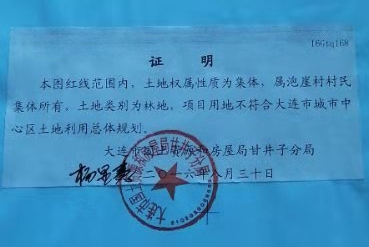 16Gsq168
证 明
本图红线范围内，土地权属性质为集体，属泡崖村村民
集体所有。土地类别为林地，项目用地不符合大连市城市中
心区土地利用总体规划。
大连市国土资源和房屋局甘井子分局
二〇一六年八月三十日